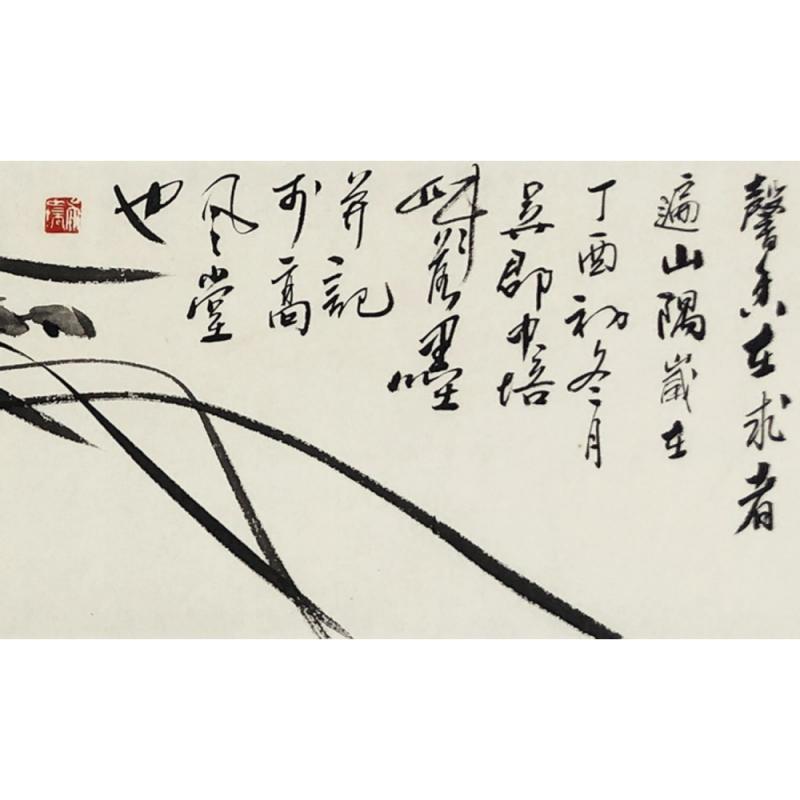 馨香在求者
遍山隅歲在
丁酉初冬月
吳郡中培
墨
并記
於高
風堂
也